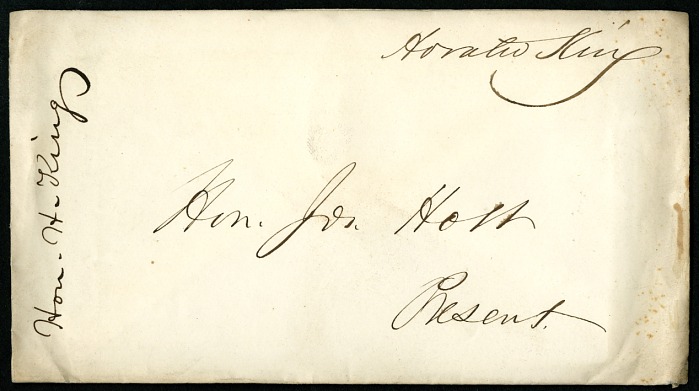 Horatio King
Hon. Jos. Holt
Present.
Hon. H. King